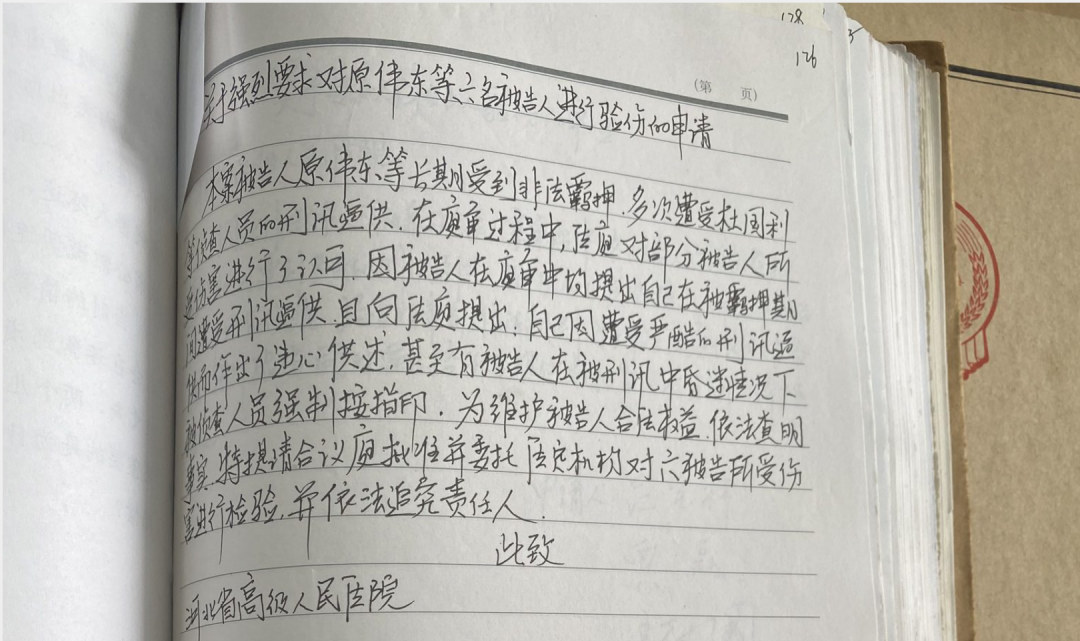 178
126
(第 页)
关于强烈要求对原伟东等六名被告人进行验伤的申请
本案被告人原伟东等长期受到非法羁押,多次遭受杜国利
等侦查人员的刑讯逼供.在庭审过程中,法庭对部分被告人所
受伤害进行了认可.因被告人在庭审中均提出自己在被羁押期
间遭受刑讯逼供.且向法庭提出,自己因遭受严酷的刑讯逼
供而作出了违心供述,甚至有被告人在被刑讯中昏迷情况下
被侦查人员强制按指印.为维护被告人合法权益.依法查明
事实.特提请合议庭批准并委托法定机构对六被告所受伤
害进行检验,并依法追究责任人.
此致
河北省高级人民法院